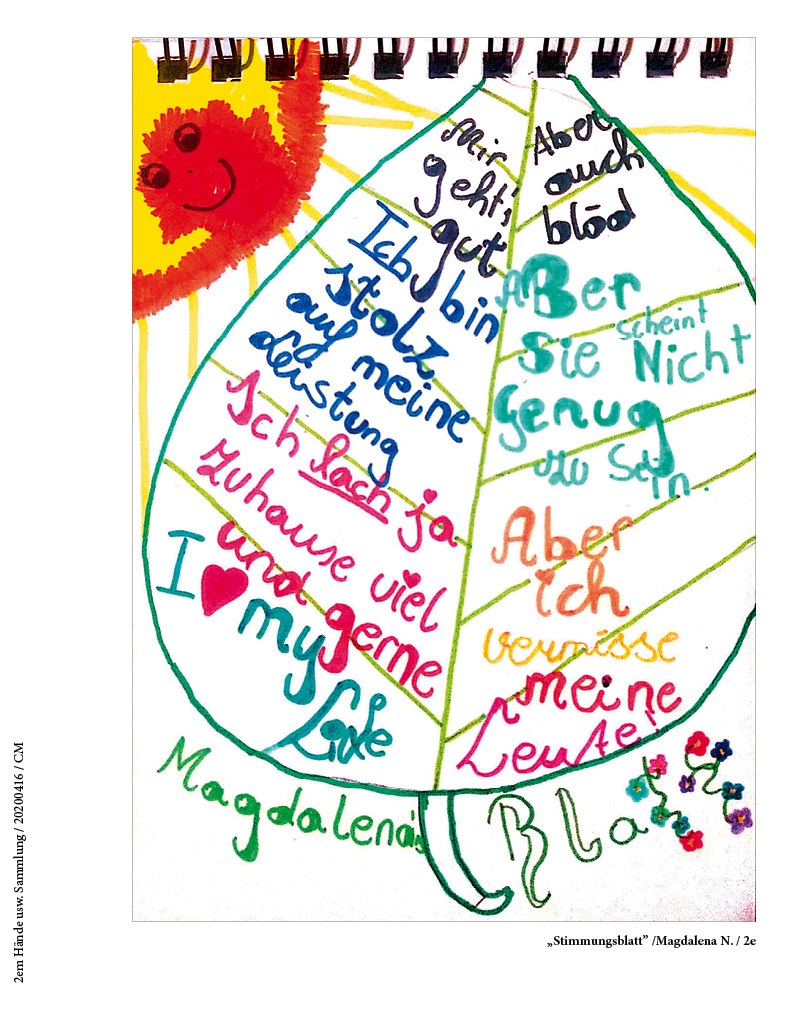 Mir
geht's
gut
Ich bin
stolz
auf meine
Leistung
Ich lach ja
zuhause viel
und gerne
I ♥ my
Life
Aber
auch
blöd
ABer
Sie scheint Nicht
Genug
zu Sein.
Aber
ich
vermisse
meine
Leute!
Magdalena's
Bla
„Stimmungsblatt” /Magdalena N. / 2e
2em Hände usw. Sammlung / 20200416 / CM